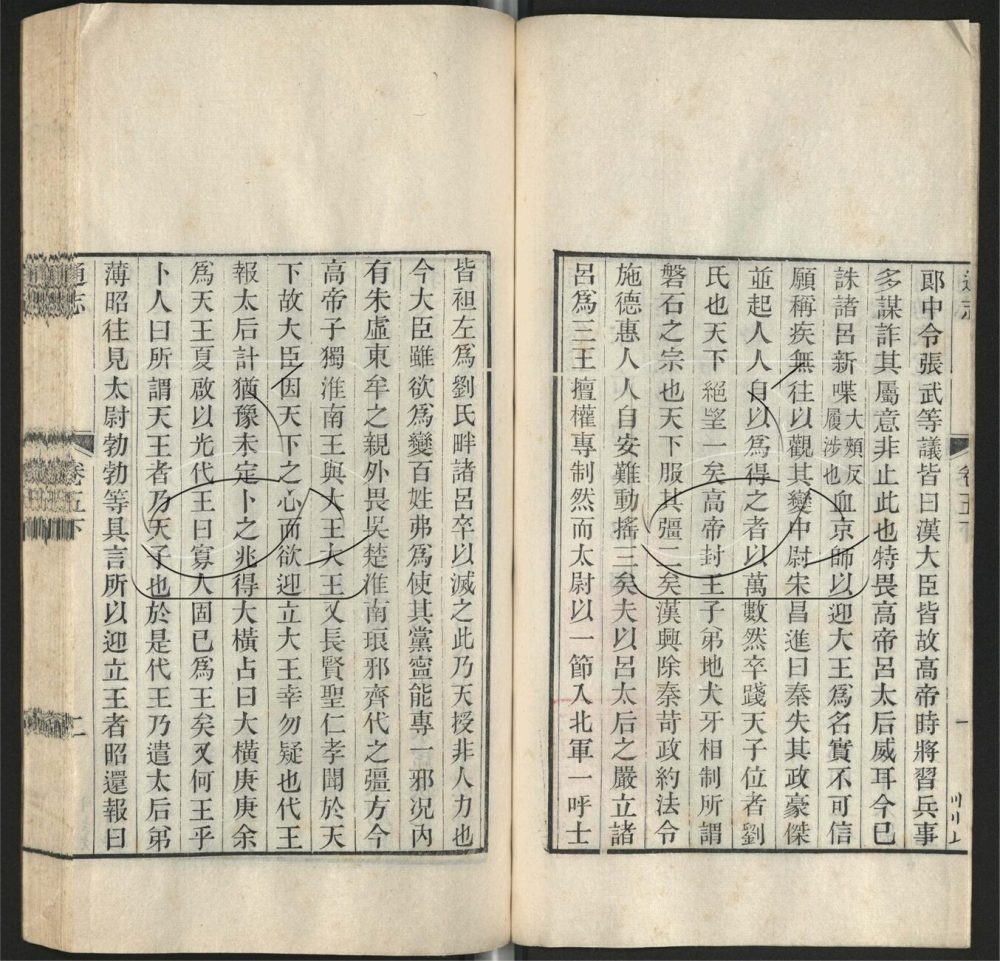 郞中令張武等議皆曰漢大臣皆故高帝時將習兵事
多謀詐其屬意非止此也特畏高帝呂太后威耳今已
誅諸呂新喋大頰反履涉也血京師以迎大王爲名實不可信
願稱疾無往以觀其變中尉宋昌進曰秦失其政豪傑
並起人人自以爲得之者以萬數然卒踐天子位者劉
氏也天下絕望一矣高帝封王子弟地犬牙相制所謂
磐石之宗也天下服其彊二矣漢興除秦苛政約法令
施德惠人人自安難動搖三矣夫以呂太后之嚴立諸
呂爲三王擅權專制然而太尉以一節入北軍一呼士
皆袒左爲劉氏畔諸呂卒以滅之此乃天授非人力也
今大臣雖欲爲變百姓弗爲使其黨寧能專一邪况內
有朱虛東牟之親外畏吳楚淮南琅邪齊代之彊方今
高帝子獨淮南王與大王大王又長賢聖仁孝聞於天
下故大臣因天下之心而欲迎立大王幸勿疑也代王
報太后計猶豫未定卜之兆得大橫占曰大橫庚庚余
爲天王夏啟以光代王曰寡人固已爲王矣又何王乎
卜人曰所謂天王者乃天子也於是代王乃遣太后弟
薄昭往見太尉勃勃等具言所以迎立王者昭還報曰
通志
卷五下
二